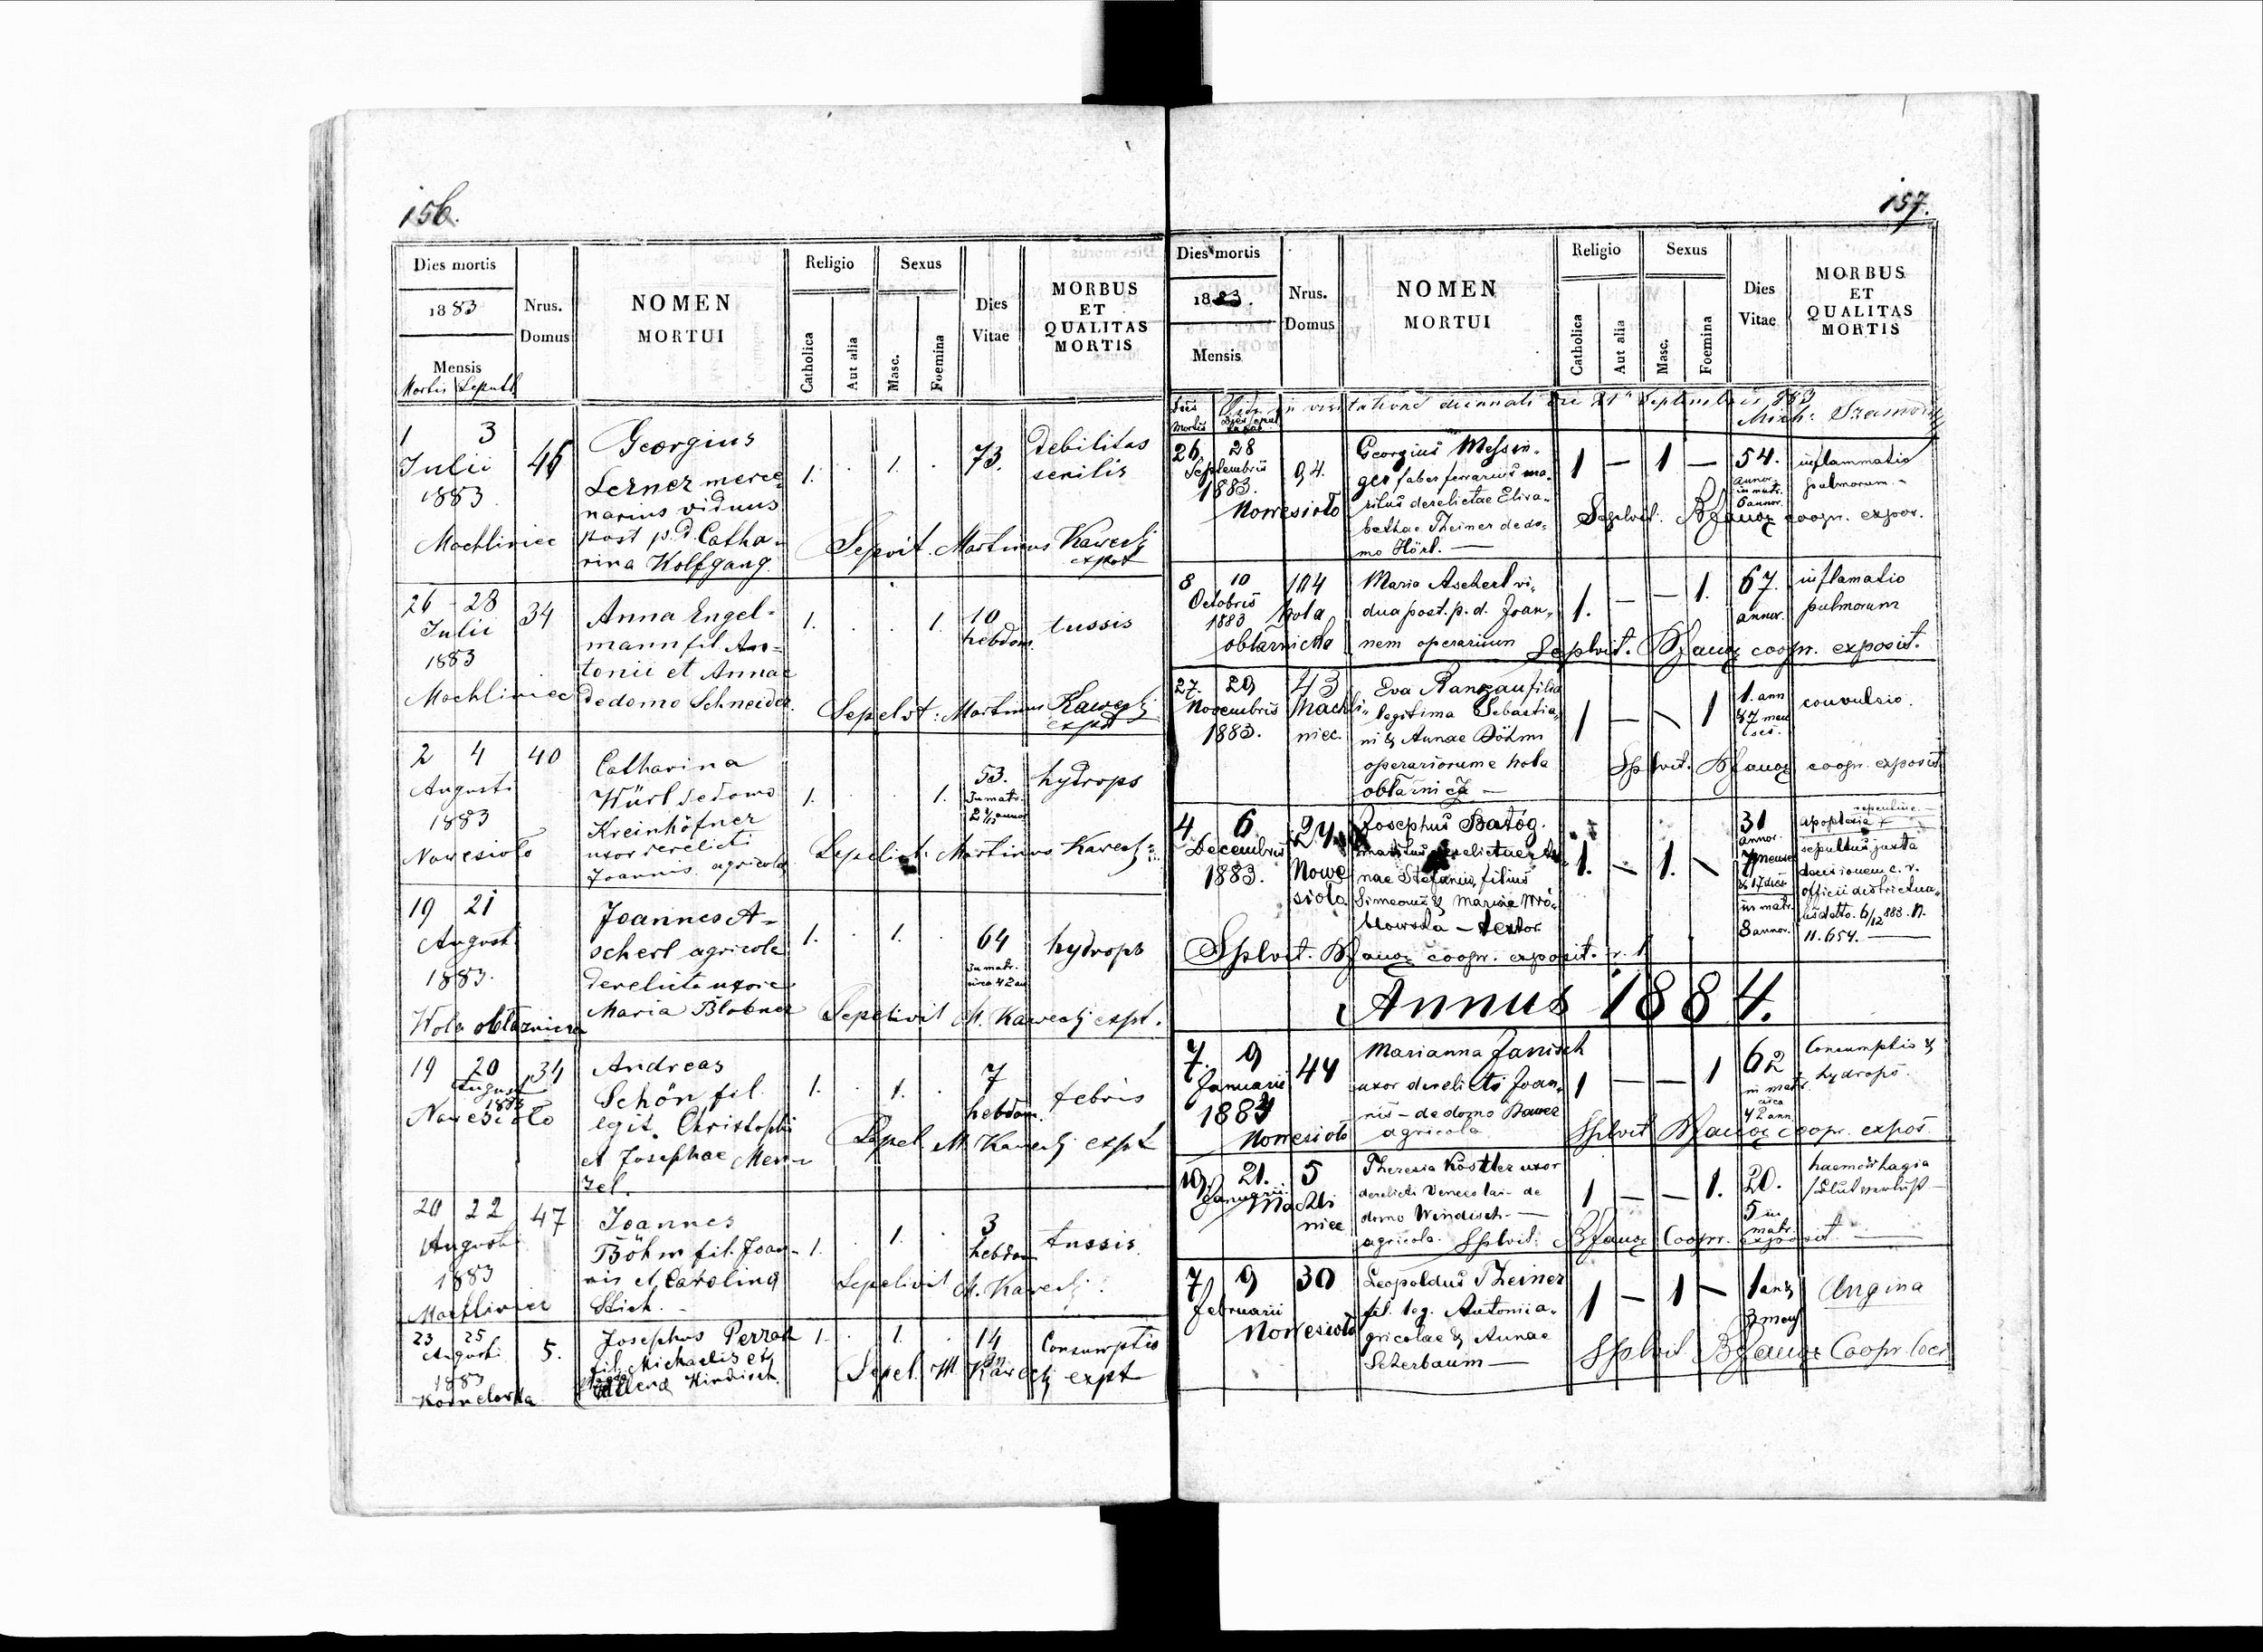 156.
Dies mortis
1883
Mensis
Mortis Sepult
Nrus.
Domus
NOMEN
MORTUI
Religio
Catholica
Aut alia
Sexus
Masc.
Foemina
Dies
Vitae
MORBUS
ET
QUALITAS
MORTIS
1 3
Julii
1883
Machliniec
46
Georgius
Lerner merce-
narius viduus
post p.d. Catha-
rina Wolfgang.
1. . 1. .
73.
debilitas
senilis
Sepvit. Martinus Kawecki
expot
26 - 28
Julii
1883
Machliniec
34
Anna Engel-
mann fil. An-
tonii et Annae
de domo Schneider.
1. . . 1.
10
hebdom.
tussis
Sepelvt: Martinus Kawecki
expot
2 4
Augusti
1883
Nowesioło
40
Catharina
Würl de domo
Kreinhöfner
uxor derelicti
Joannis agricola
1. . . 1.
53.
In matr.
hydrops
Sepelivit: Martinus Kawecki
19 21
Augusti
1883.
Wola obłaznica
Joannes A-
scherl agricola
derelicta uxore
Maria Blobner
1. . 1. .
64
in matr.
circa 42 an
hydrops
Sepelivit M. Kawecki expt.
19 20
Augusti
1883
Nowesioło
34
Andreas
Schön fil.
legit. Christophi
et Josephae Men-
zel.
1. . 1. .
7
hebdom.
febris
Sepel. M. Kawecki expt
20 22
Augusti
1883
Machliniec
47
Joannes
Böhm fil. Joan-
nis et Carolina
Stich. -
1. . 1. .
3
hebdom
tussis
Sepelivit M. Kawecki.
23 25
Augusti
1883
Kornelowka
5.
Josephus Perrak
fil. Michaelis et
Windisch.
1. . 1. .
14
an
Consumptio
Sepel. M. Kawecki expt
157.
Dies mortis
1883.
Mensis
Nrus.
Domus
NOMEN
MORTUI
Religio
Catholica
Aut alia
Sexus
Masc.
Foemina
Dies
Vitae
MORBUS
ET
QUALITAS
MORTIS
Dies
Mortis
in visitatione decanali die 21a Septembris 883
Mich:
26 28
Septembris
1883.
Nowesioło
94.
Georgius Messin-
ger faber ferrarius ma-
ritus derelictae Elisa-
bethae Theiner de do-
mo Hörl. —
1 — 1 —
54.
annor.
in matr.
6 annor.
inflammatio
pulmorum. -
Seplvit. coopr. expos.
8 10
Octobris
1883
104
Wola
obłaznicka
Maria Ascherl vi-
dua post. p. d. Joan-
nem operarium
1. — — 1.
67.
annor.
inflamatio
pulmorum
Seplvit. coopr. exposit.
27. 29
Novembris
1883.
43
Machli-
niec.
Eva Ranzau filia
legitima Sebastia-
ni & Annae Böhm
operariorum e Wola
obłaznica —
1 — — 1
1. ann
& 7 men
ses.
convulsio.
Splvit. coopr. exposit
4 6
Decembris
1883.
24
Nowe
sioło
Josephus Batóg.
maritus derelictae An-
nae Stefaniu, filius
Simeonis & Mariae Wró-
blowska — textor
1. — 1. —
31
annor.
7 menses
& 17 dies
in matr.
8 annor.
repentine. —
apoplexia +
sepultus juxta
decisionem c. r.
officii districtua-
lis ddto. 6/12 883. N.
11.654. —
Splvit. coopr. exposit.
Annus 1884.
7. 9
Januarii
1884
Nowesioło
44
Marianna Janisch
uxor derelicti Joan-
nis — de domo Bawer
agricola
1 — — 1
62
in matr.
circa
42 ann.
Consumptio &
hydrops.
Splvit coopr. expos.
19. 21.
Januarii.
Machli
niec
5
Theresia Köstler uxor
derelicti Venceslai - de
domo Windisch. —
agricola.
1 — — 1.
20.
5 in
matr.
haemorrhagia
/Blutverlust —
Splvit: Coopr. exposit. —
7 9
Februarii
Nowesioło
30
Leopoldus Theiner
fil. leg. Antonii a-
gricolae & Annae
Scherbaum —
1 — 1 —
1 an &
3 mens
Angina
Splvit Coopr. loci